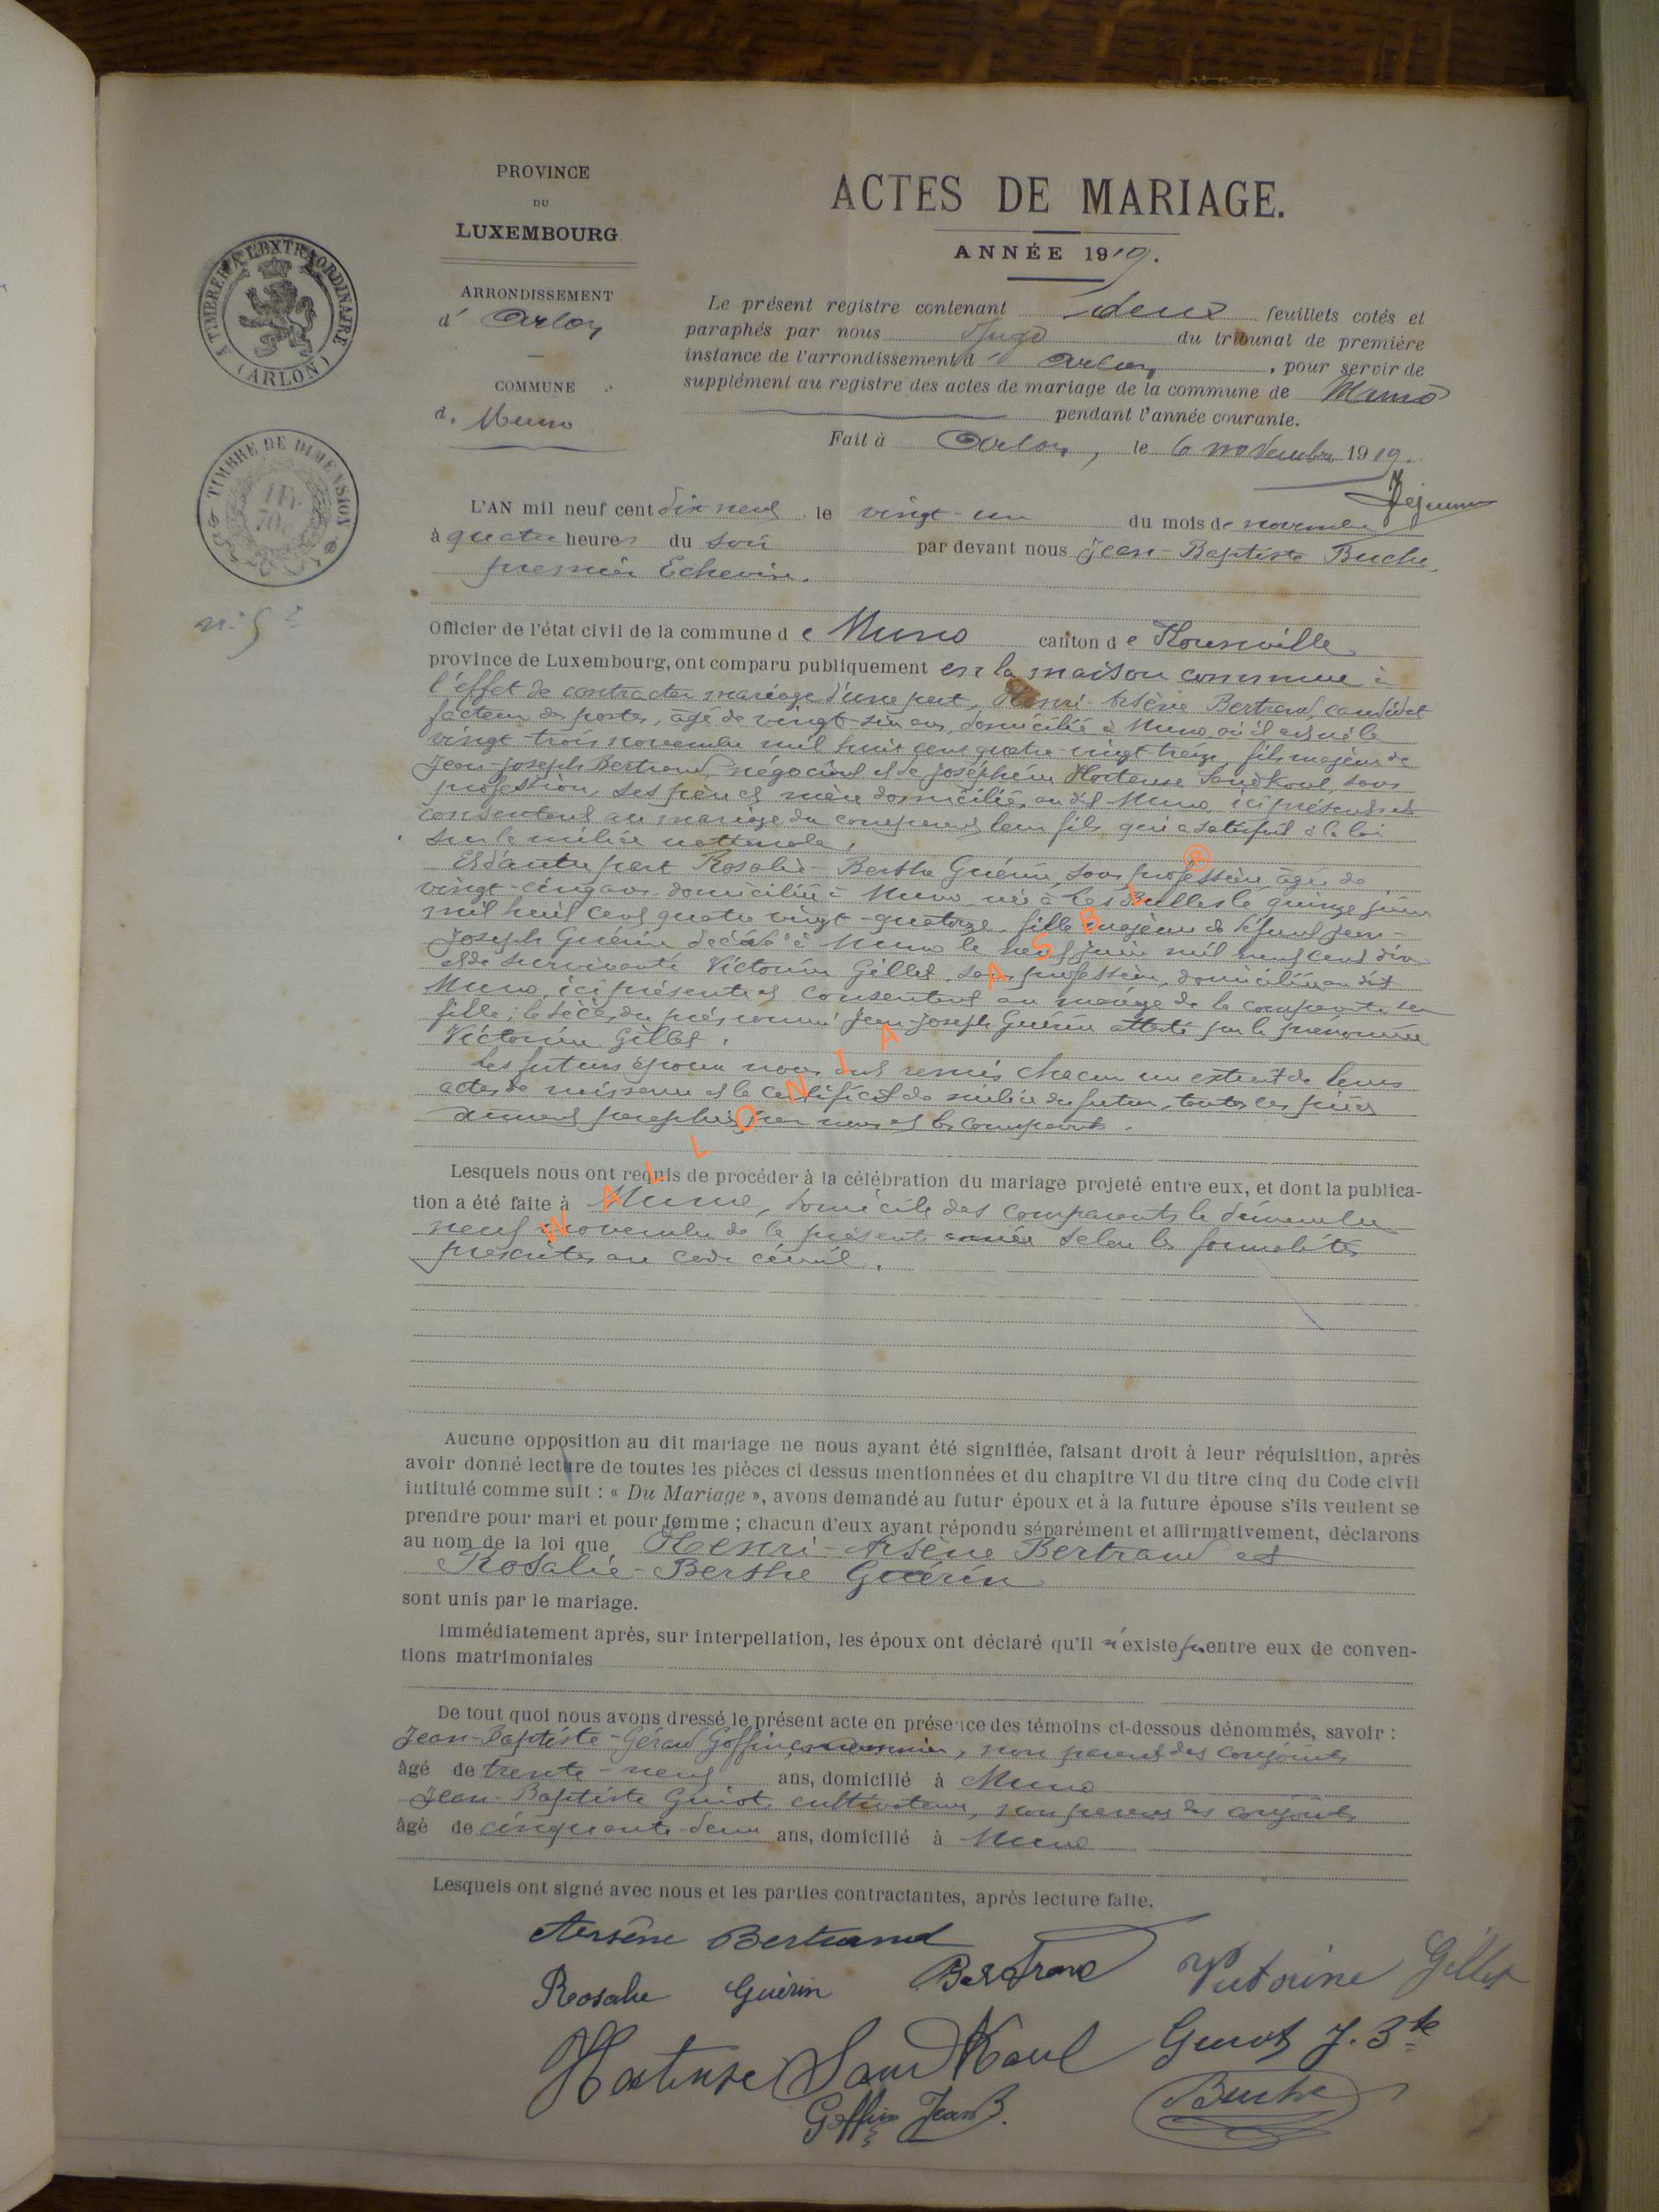 PROVINCE
DU
LUXEMBOURG
ARRONDISSEMENT
d' Arlon
COMMUNE
de Muno
A TIMBRER A L'EXTRAORDINAIRE
(ARLON)
TIMBRE DE DIMENSION
n° 5
ACTES DE MARIAGE.
ANNÉE 1919.
Le présent registre contenant deux feuillets cotés et
paraphés par nous Juge du tribunal de première
instance de l'arrondissement d' Arlon, pour servir de
supplément au registre des actes de mariage de la commune de Muno
pendant l'année courante.
Fait à Arlon, le 6 novembre 1919.
L'AN mil neuf cent dix neuf le vingt-un du mois de novembre
à quatre heures du soir par devant nous Jean-Baptiste Buche,
premier Echevin.
Officier de l'état civil de la commune de Muno canton de Florenville
province de Luxembourg, ont comparu publiquement en la maison commune à
l'effet de contracter mariage d'une part, Henri-Arsène Bertrand, candidat
facteur des postes, âgé de vingt-six ans, domicilié à Muno où il est né le
vingt-trois novembre mil huit cent quatre-vingt treize, fils majeur de
Jean-Joseph Bertrand, négociant et de Joséphine Hortense Sandkoul, sans
profession, ses père et mère domiciliés au dit Muno, ici présents et
consentant au mariage du comparant leur fils qui a satisfait à la loi
sur la milice nationale.
Et d'autre part Rosalie-Berthe Guérin, sans profession, âgée de
vingt-cinq ans, domiciliée à Muno, née à Les Bulles le quinze juin
mil huit cent quatre vingt-quatorze, fille majeure de défunt Jean-
Joseph Guérin décédé à Muno le neuf juin mil neuf cent dix
et de survivante Victorine Gillet, sans profession, domiciliée au dit
Muno, ici présente et consentant au mariage de la comparante sa
fille; le décès du prénommé Jean-Joseph Guérin attesté par la prénommée
Victorine Gillet.
Les futurs époux nous ont remis chacun un extrait de leurs
actes de naissance et le certificat de milice du futur, toutes ces pièces
dûment paraphées par nous et les comparants.
Lesquels nous ont requis de procéder à la célébration du mariage projeté entre eux, et dont la publica-
tion a été faite à Muno, domicile des comparants le dimanche
neuf novembre de la présente année selon les formalités
prescrites au code civil.
Aucune opposition au dit mariage ne nous ayant été signifiée, faisant droit à leur réquisition, après
avoir donné lecture de toutes les pièces ci dessus mentionnées et du chapitre VI du titre cinq du Code civil
intitulé comme suit : « Du Mariage », avons demandé au futur époux et à la future épouse s'ils veulent se
prendre pour mari et pour femme ; chacun d'eux ayant répondu séparément et affirmativement, déclarons
au nom de la loi que Henri-Arsène Bertrand et
Rosalie-Berthe Guérin
sont unis par le mariage.
Immédiatement après, sur interpellation, les époux ont déclaré qu'il n'existe pas entre eux de conven-
tions matrimoniales
De tout quoi nous avons dressé le présent acte en présence des témoins ci-dessous dénommés, savoir :
Jean-Baptiste-Gérard Goffin, non parent des conjoints
âgé de trente-neuf ans, domicilié à Muno
Jean-Baptiste Guiot, cultivateur, non parent des conjoints
âgé de cinquante-deux ans, domicilié à Muno
Lesquels ont signé avec nous et les parties contractantes, après lecture faite.
Arsène Bertrand
Rosalie Guérin Bertrand Victorine Gillet
Hortense Sandkoul Guiot J. Bte
Goffin Jean B. Buche
WALLONIA ASBL ®